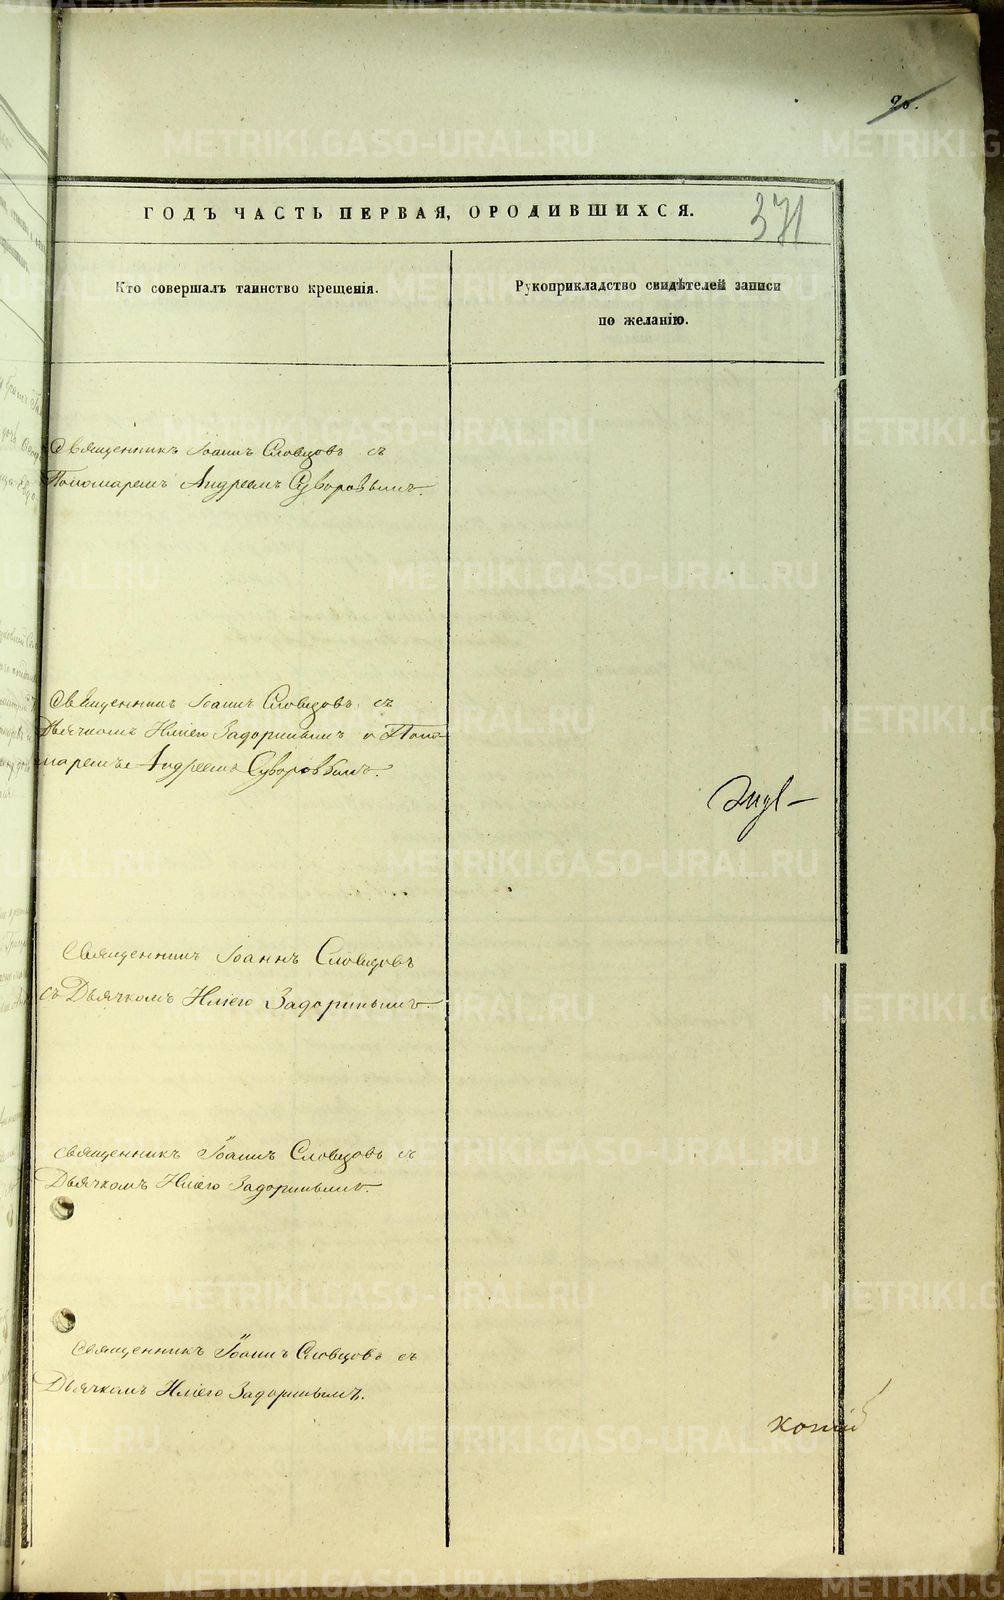 90.
ГОДЪ ЧАСТЬ ПЕРВАЯ, О РОДИВШИХСЯ.
371
Кто совершалъ таинство крещенія.
Рукоприкладство свидѣтелей записи
по желанію.
Священникъ Іоаннъ Словцовъ съ
Пономаремъ Андреемъ Суворовымъ.
Священникъ Іоаннъ Словцовъ, съ
Дьячкомъ Иліею Задоринымъ и Поно
маремъ Андреемъ Суворовымъ.
Священникъ Іоаннъ Словцовъ
съ Дьячкомъ Иліею Задоринымъ.
Священникъ Іоаннъ Словцовъ съ
Дьячкомъ Иліею Задоринымъ.
Священникъ Іоаннъ Словцовъ съ
Дьячкомъ Иліею Задоринымъ.
METRIKI.GASO-URAL.RU